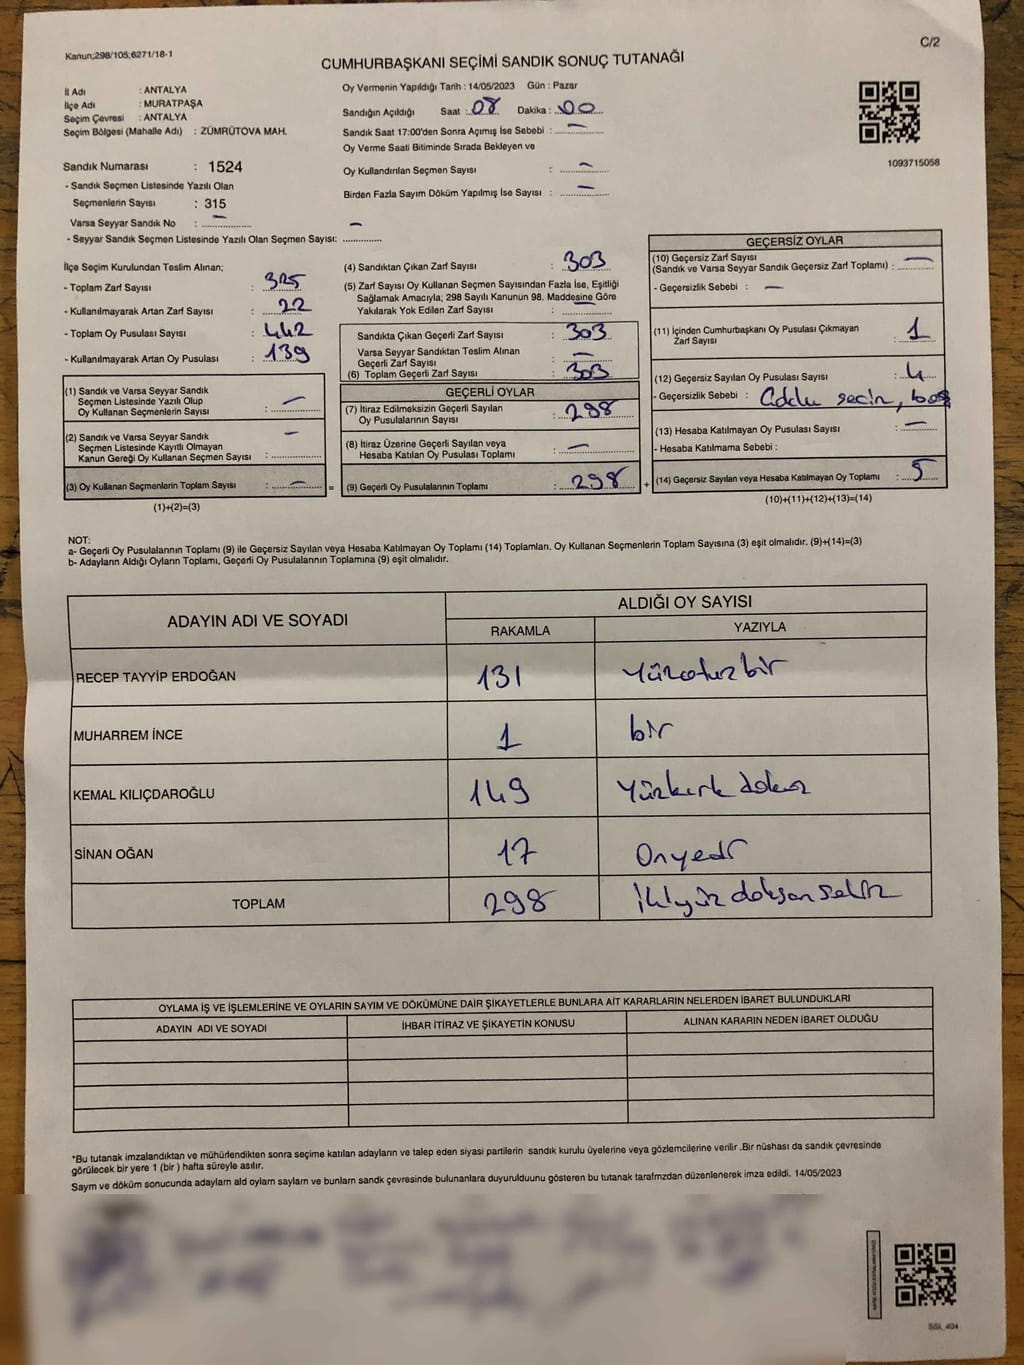 Kanun;298/105;6271/18-1
C/2
CUMHURBAŞKANI SEÇİMİ SANDIK SONUÇ TUTANAĞI
İl Adı : ANTALYA
İlçe Adı : MURATPAŞA
Seçim Çevresi : ANTALYA
Seçim Bölgesi (Mahalle Adı) : ZÜMRÜTOVA MAH.
Sandık Numarası : 1524
- Sandık Seçmen Listesinde Yazılı Olan
Seçmenlerin Sayısı : 315
Varsa Seyyar Sandık No : –
- Seyyar Sandık Seçmen Listesinde Yazılı Olan Seçmen Sayısı: –
Oy Vermenin Yapıldığı Tarih : 14/05/2023 Gün : Pazar
Sandığın Açıldığı Saat : 08 Dakika : 00
Sandık Saat 17:00'den Sonra Açımış İse Sebebi : –
Oy Verme Saati Bitiminde Sırada Bekleyen ve
Oy Kullandırılan Seçmen Sayısı : –
Birden Fazla Sayım Döküm Yapılmış İse Sayısı : –
1093715058
İlçe Seçim Kurulundan Teslim Alınan;
- Toplam Zarf Sayısı : 325
- Kullanılmayarak Artan Zarf Sayısı : 22
- Toplam Oy Pusulası Sayısı : 442
- Kullanılmayarak Artan Oy Pusulası : 139
(1) Sandık ve Varsa Seyyar Sandık
Seçmen Listesinde Yazılı Olup
Oy Kullanan Seçmenlerin Sayısı : –
(2) Sandık ve Varsa Seyyar Sandık
Seçmen Listesinde Kayıtlı Olmayan
Kanun Gereği Oy Kullanan Seçmen Sayısı : –
(3) Oy Kullanan Seçmenlerin Toplam Sayısı : – =
(1)+(2)=(3)
(4) Sandıktan Çıkan Zarf Sayısı : 303
(5) Zarf Sayısı Oy Kullanan Seçmen Sayısından Fazla İse, Eşitliği
Sağlamak Amacıyla; 298 Sayılı Kanunun 98. Maddesine Göre
Yakılarak Yok Edilen Zarf Sayısı : –
Sandıkta Çıkan Geçerli Zarf Sayısı : 303
Varsa Seyyar Sandıktan Teslim Alınan
Geçerli Zarf Sayısı : –
(6) Toplam Geçerli Zarf Sayısı : 303
GEÇERLİ OYLAR
(7) İtiraz Edilmeksizin Geçerli Sayılan
Oy Pusulalarının Sayısı : 298
(8) İtiraz Üzerine Geçerli Sayılan veya
Hesaba Katılan Oy Pusulası Toplamı : –
(9) Geçerli Oy Pusulalarının Toplamı : 298 +
GEÇERSİZ OYLAR
(10) Geçersiz Zarf Sayısı
(Sandık ve Varsa Seyyar Sandık Geçersiz Zarf Toplamı) : –
- Geçersizlik Sebebi : –
(11) İçinden Cumhurbaşkanı Oy Pusulası Çıkmayan
Zarf Sayısı : 1
(12) Geçersiz Sayılan Oy Pusulası Sayısı : 4
- Geçersizlik Sebebi : seçim, boş
(13) Hesaba Katılmayan Oy Pusulası Sayısı : –
- Hesaba Katılmama Sebebi :
(14) Geçersiz Sayılan veya Hesaba Katılmayan Oy Toplamı : 5
(10)+(11)+(12)+(13)=(14)
NOT:
a- Geçerli Oy Pusulalarının Toplamı (9) ile Geçersiz Sayılan veya Hesaba Katılmayan Oy Toplamı (14) Toplamları, Oy Kullanan Seçmenlerin Toplam Sayısına (3) eşit olmalıdır. (9)+(14)=(3)
b- Adayların Aldığı Oyların Toplamı, Geçerli Oy Pusulalarının Toplamına (9) eşit olmalıdır.
ADAYIN ADI VE SOYADI ALDIĞI OY SAYISI
RAKAMLA YAZIYLA
RECEP TAYYİP ERDOĞAN 131 Yüzotuzbir
MUHARREM İNCE 1 bir
KEMAL KILIÇDAROĞLU 149 Yüzkırk dokuz
SİNAN OĞAN 17 Onyedi
TOPLAM 298 ikiyüz doksan sekiz
OYLAMA İŞ VE İŞLEMLERİNE VE OYLARIN SAYIM VE DÖKÜMÜNE DAİR ŞİKAYETLERLE BUNLARA AİT KARARLARIN NELERDEN İBARET BULUNDUKLARI
ADAYIN ADI VE SOYADI İHBAR İTİRAZ VE ŞİKAYETİN KONUSU ALINAN KARARIN NEDEN İBARET OLDUĞU
*Bu tutanak imzalandıktan ve mühürlendikten sonra seçime katılan adayların ve talep eden siyasi partilerin sandık kurulu üyelerine veya gözlemcilerine verilir .Bir nüshası da sandık çevresinde
görülecek bir yere 1 (bir ) hafta süreyle asılır.
Sayım ve döküm sonucunda adayların ald oyların sayların ve bunların sandk çevresinde bulunanlara duyurulduunu gösteren bu tutanak tarafmzdan düzenlenerek imza edildi. 14/05/2023
SSI_404